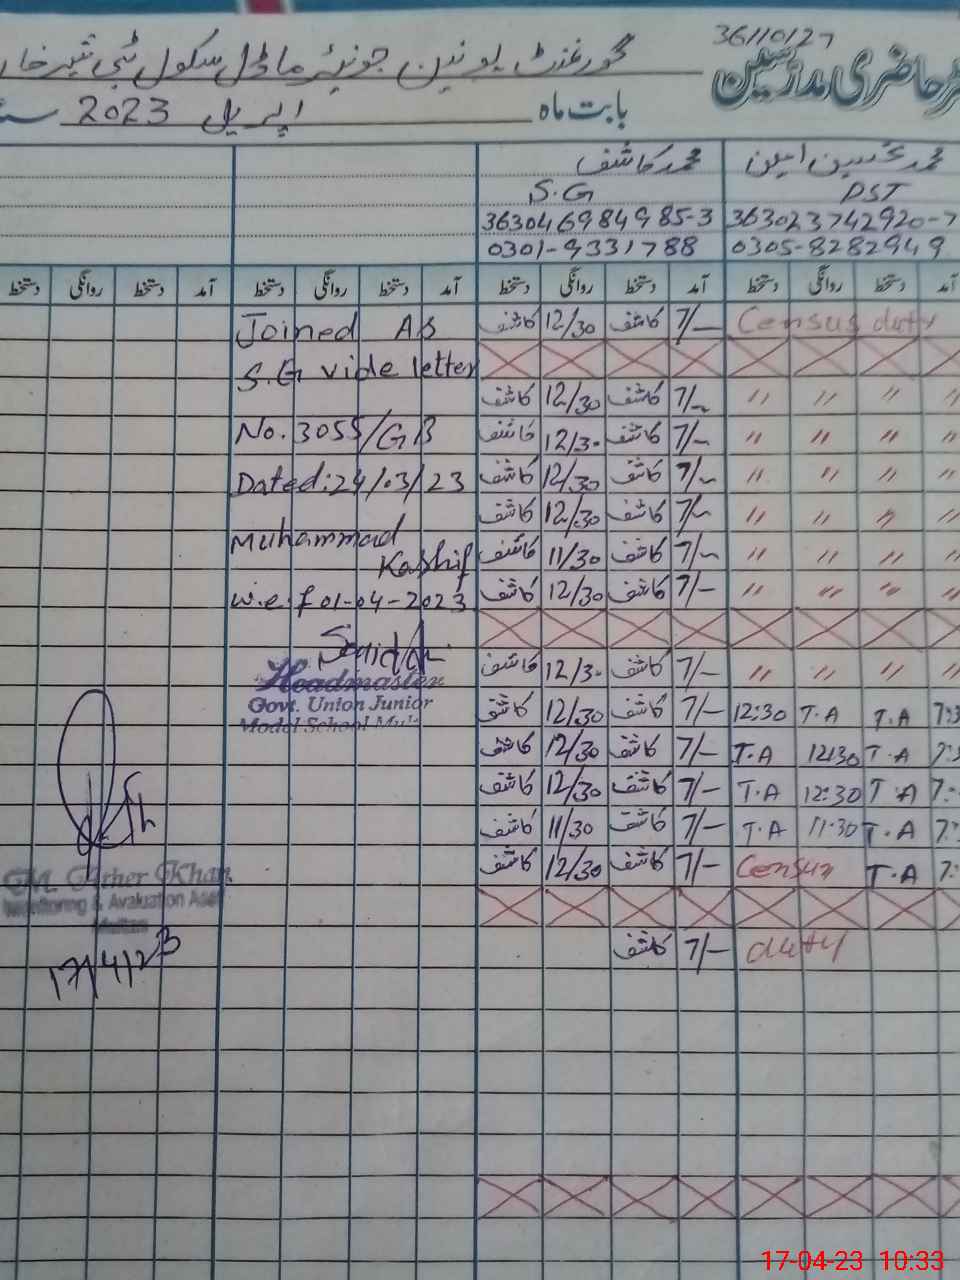 36110127
رجسٹر حاضری مدرسین
گورنمنٹ یونین جونیئر ماڈل سکول ٹبی شیر خان
بابت ماہ اپریل 2023
محمد تحسین امین محمد کاشف
PST S.G
363023742920-7 3630469849985-3
0305-8282949 0301-9331788
آمد دستخط روانگی دستخط آمد دستخط روانگی دستخط آمد دستخط روانگی دستخط آمد دستخط روانگی دستخط
Joined As کاشف 12/30 کاشف 7/- Census duty
S.G vide letter
کاشف 12/30 کاشف 7/- 〃 〃 〃 〃
No. 3055/GB کاشف 12/30 کاشف 7/- 〃 〃 〃 〃
Dated:24/03/23 کاشف 12/30 کاشف 7/- 〃 〃 〃 〃
کاشف 12/30 کاشف 7/- 〃 〃 〃 〃
Muhammad
Kashif کاشف 11/30 کاشف 7/- 〃 〃 〃 〃
w.e.f 01-04-2023 کاشف 12/30 کاشف 7/- 〃 〃 〃 〃
Headmaster
Govt. Union Junior
Model School
کاشف 12/30 کاشف 7/- 〃 〃 〃 〃
کاشف 12/30 کاشف 7/- 12:30 T.A T.A
کاشف 12/30 کاشف 7/- T.A 12:30 T.A
کاشف 12/30 کاشف 7/- T.A 12:30 T.A
کاشف 11/30 کاشف 7/- T.A 11:30 T.A
کاشف 12/30 کاشف 7/- Census T.A
کاشف 7/- duty
M. Ather Khan
Monitoring & Evaluation Asst
Multan
17/4/23
17-04-23 10:33